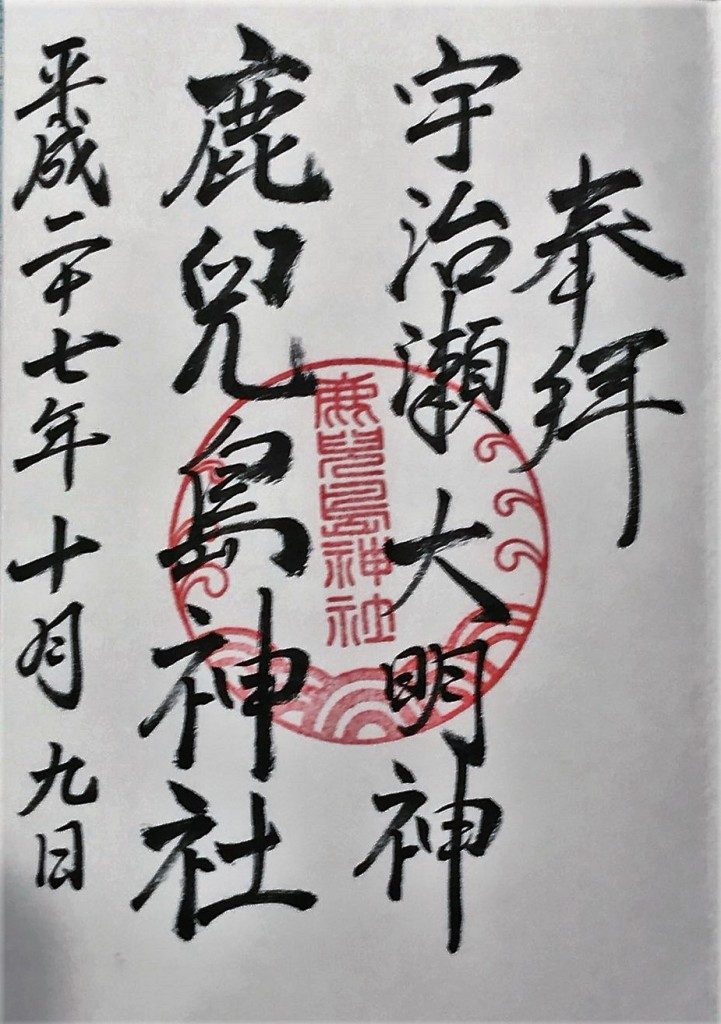 奉拜
宇治瀬大明神
鹿兒島神社
平成二十七年十月九日
鹿兒島神社